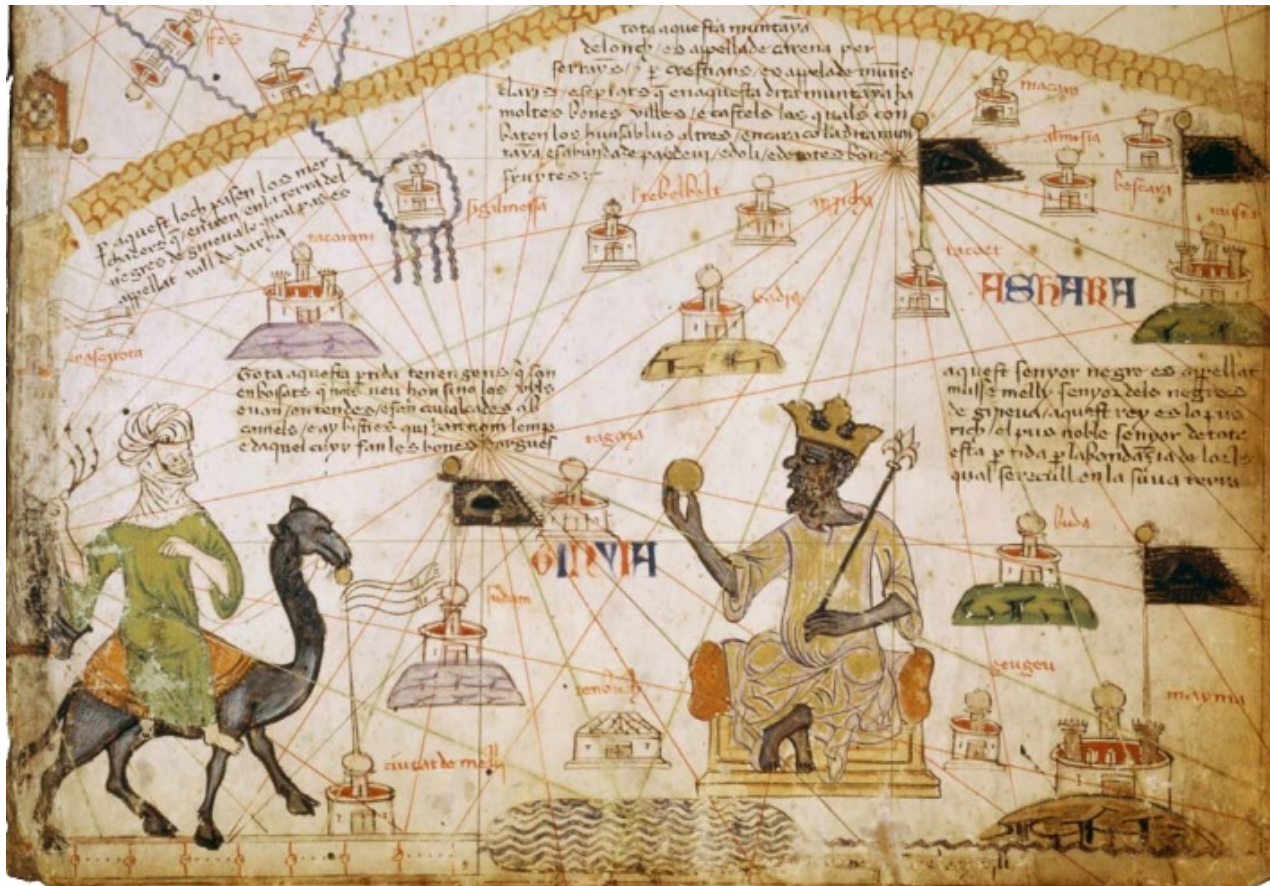 fes
tota aquesta muntanya
de lonch / es appellada carena per
serrayns / e per crestians / es appelada muntis
claris e sepiats q en aquesta dita muntanya ha
moltes bones villes / e castels los quals con
baten los huns ab los altres / encara co la dita mun
tanya es abundada de pa e de vi / e doli / e de totes bones
fruytes :~
p aquest loch pasen los mer
chaders q entren en la terra del
negres de gineua lo qual pas es
appellat vall de darha
sigilmessa
tacorom
tebelbelt
buda
tacort
ASHARA
Tota aquesta ptida tenen gens q son
enbossats q nols veu hom sino los uyls
e van / en tendes / e fan caualcades ab
camels / e ay bisties qui han nom lemp
e daquel cuyr fan les bones dargues
aquest senyor negre es appellat
musse melly / senyor dels negres
de gineua / aquest rey es lo pus
rich / el pus noble senyor de tota
esta ptida p labondancia de lor lo
qual se recull en la suua terra
tagaza
GINYIA
sudam
tenbuch
ciutat de melly
geugeu
mayma